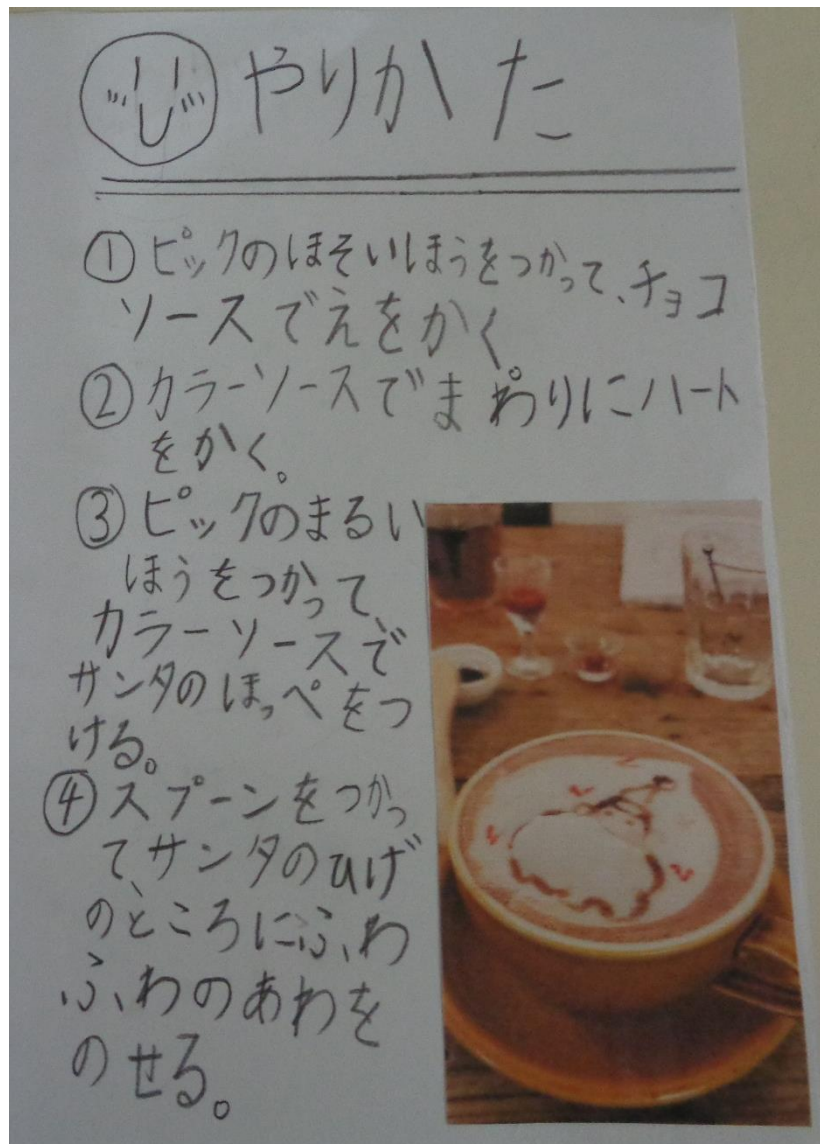 やりかた
①ピックのほそいほうをつかって、チョコ
ソースでえをかく
②カラーソースでまわりにハート
をかく。
③ピックのまるい
ほうをつかって、
カラーソースで
サンタのほっぺをつ
ける。
④スプーンをつかっ
て、サンタのひげ
のところにふわ
ふわのあわを
のせる。